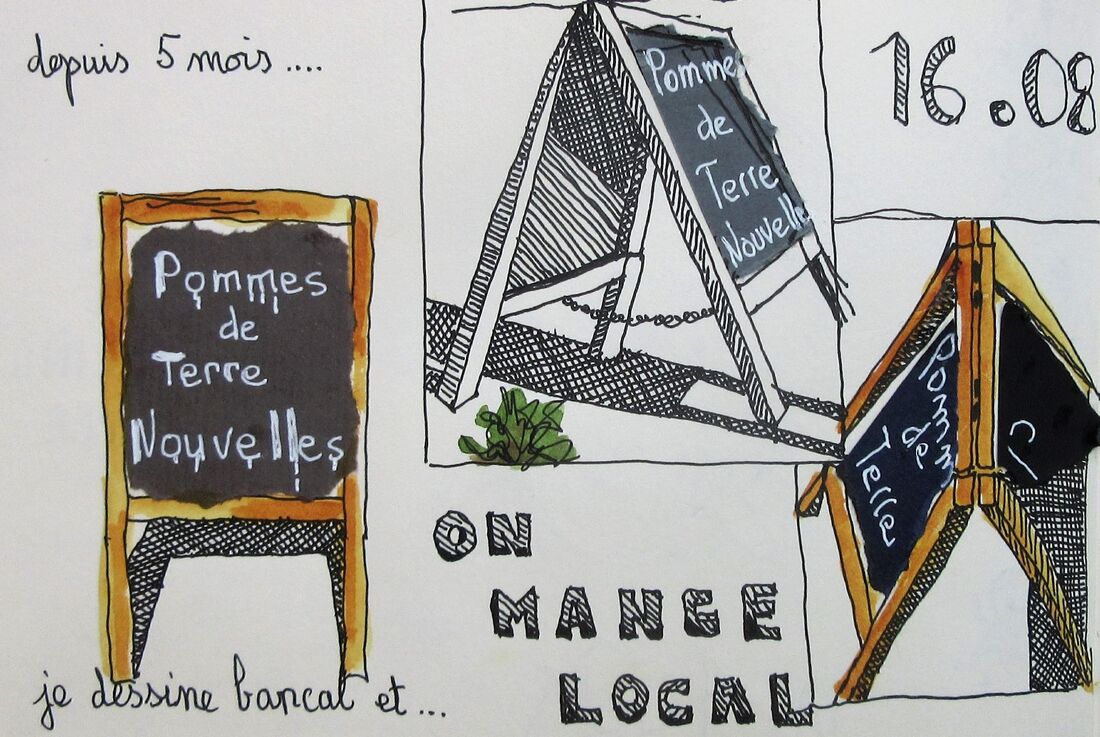 depuis 5 mois ....
Pommes
de
Terre
Nouvelles
je dessine bancal et ...
Pommes
de
Terre
Nouvelle
16.08
Pomm
de
Terre
ON
MANGE
LOCAL